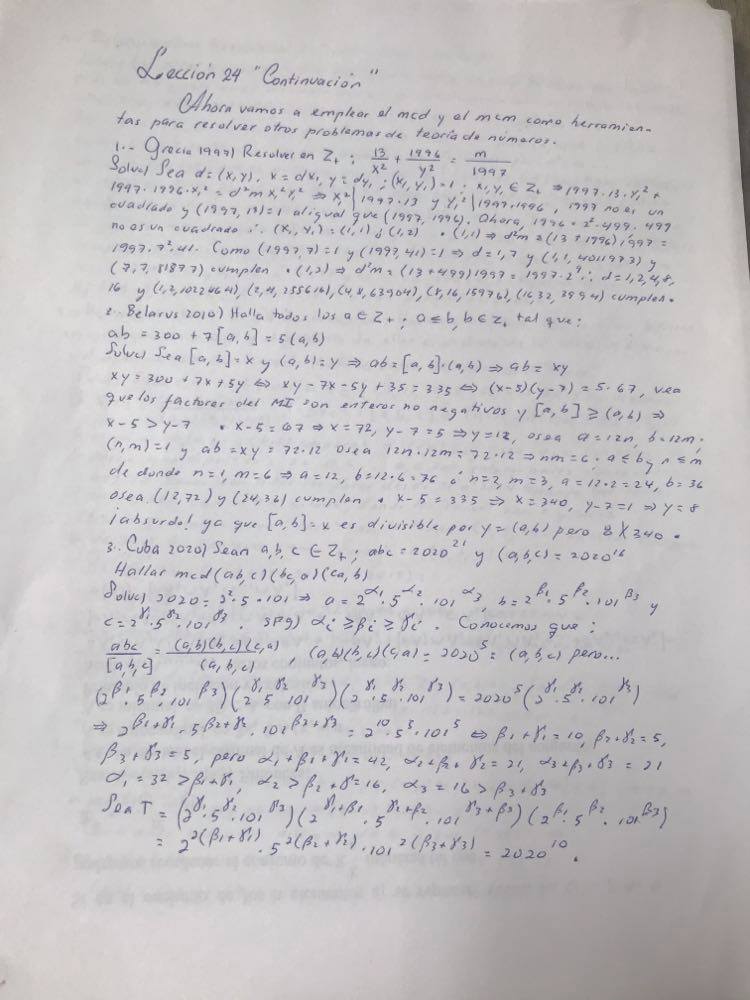 Lección 24 "Continuación"
Ahora vamos a emplear el mcd y el mcm como herramien-
tas para resolver otros problemas de teoría de números.
1.- Grecia 1997) Resolver en Z₊ : 13/x² + 1996/y² = m/1997
Soluc) Sea d=(x,y), x=dx₁, y=dy₁ ; (x₁,y₁)=1 ; x₁,y₁ ∈ Z₊ ⇒ 1997·13·y₁² +
1997·1996·x₁² = d²m x₁²y₁² ⇒ x₁² | 1997·13 y y₁² | 1997·1996, 1997 no es un
cuadrado y (1997,13)=1 al igual que (1997,1996). Ahora, 1996=2²·499. 499
no es un cuadrado ∴ (x₁,y₁)=(1,1) ó (1,2) • (1,1) ⇒ d²m=(13+1996)1997=
1997·7²·41. Como (1997,7)=1 y (1997,41)=1 ⇒ d=1,7 y (1,1,4011973) y
(7,7,81877) cumplen • (1,2) ⇒ d²m=(13+499)1997=1997·2⁹ ∴ d=1,2,4,8,
16 y (1,2,1022464), (2,4,255616), (4,8,63904), (8,16,15976), (16,32,3994) cumplen.
2.- Belarus 2010) Halla todos los a∈Z₊ ; a≤b, b∈Z₊ tal que:
ab = 300 + 7[a,b] = 5(a,b)
Soluc) Sea [a,b]=x y (a,b)=y ⇒ ab=[a,b]·(a,b) ⇒ ab=xy
xy=300+7x+5y ⇔ xy-7x-5y+35=335 ⇔ (x-5)(y-7)=5·67, vea
que los factores del MI son enteros no negativos y [a,b] ≥ (a,b) ⇒
x-5 > y-7 • x-5=67 ⇒ x=72, y-7=5 ⇒ y=12, osea a=12n, b=12m;
(n,m)=1 y ab=xy=72·12 osea 12n·12m=72·12 ⇒ nm=6. a≤b y n≤m
de donde n=1, m=6 ⇒ a=12, b=12·6=76 ó n=2, m=3, a=12·2=24, b=36
osea (12,72) y (24,36) cumplen • x-5=335 ⇒ x=340, y-7=1 ⇒ y=8
¡absurdo! ya que [a,b]=x es divisible por y=(a,b) pero 8∤340.
3.- Cuba 2020) Sean a,b,c ∈ Z₊ ; abc=2020²¹ y (a,b,c)=2020¹⁶
Hallar mcd(ab,c)(bc,a)(ca,b)
Soluc) 2020=2²·5·101 ⇒ a=2^α₁·5^α₂·101^α₃, b=2^β₁·5^β₂·101^β₃ y
c=2^γ₁·5^γ₂·101^γ₃. SPG) αᵢ≥βᵢ≥γᵢ. Conocemos que:
abc/[a,b,c] = (a,b)(b,c)(c,a)/(a,b,c), (a,b)(b,c)(c,a)=2020⁵=(a,b,c) pero...
(2^β₁·5^β₂·101^β₃)(2^γ₁ 5^γ₂ 101^γ₃)(2^γ₁·5^γ₂·101^γ₃)=2020⁵(2^γ₁·5^γ₂·101^γ₃)
⇒ 2^β₁+γ₁·5^β₂+γ₂·101^β₃+γ₃=2¹⁰·5⁵·101⁵ ⇔ β₁+γ₁=10, β₂+γ₂=5,
β₃+γ₃=5, pero α₁+β₁+γ₁=42, α₂+β₂+γ₂=21, α₃+β₃+γ₃=21
α₁=32>β₁+γ₁, α₂>β₂+γ=16, α₃=16>β₃+γ₃
Sea T = (2^γ₁·5^γ₂·101^γ₃)(2^γ₁+β₁·5^γ₂+β₂·101^γ₃+β₃)(2^β₁·5^β₂·101^β₃)
= 2^2(β₁+γ₁)·5^2(β₂+γ₂)·101^2(β₃+γ₃)=2020¹⁰.